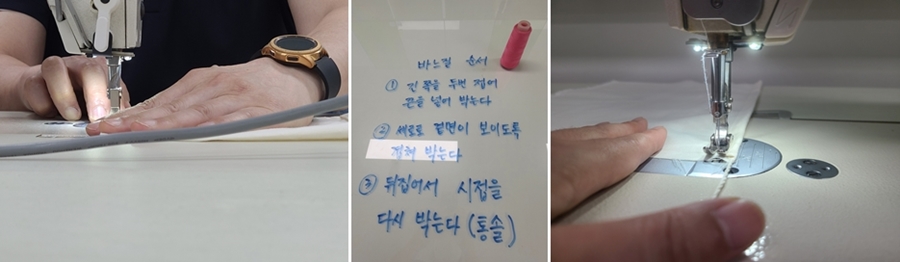 바느질 순서
① 긴 쪽을 두면 접어
끈을 넣어 박는다
② 세로로 겉면이 보이도록
접혀 박는다
③ 뒤집어서 시접을
다시 박는다 (통솔)